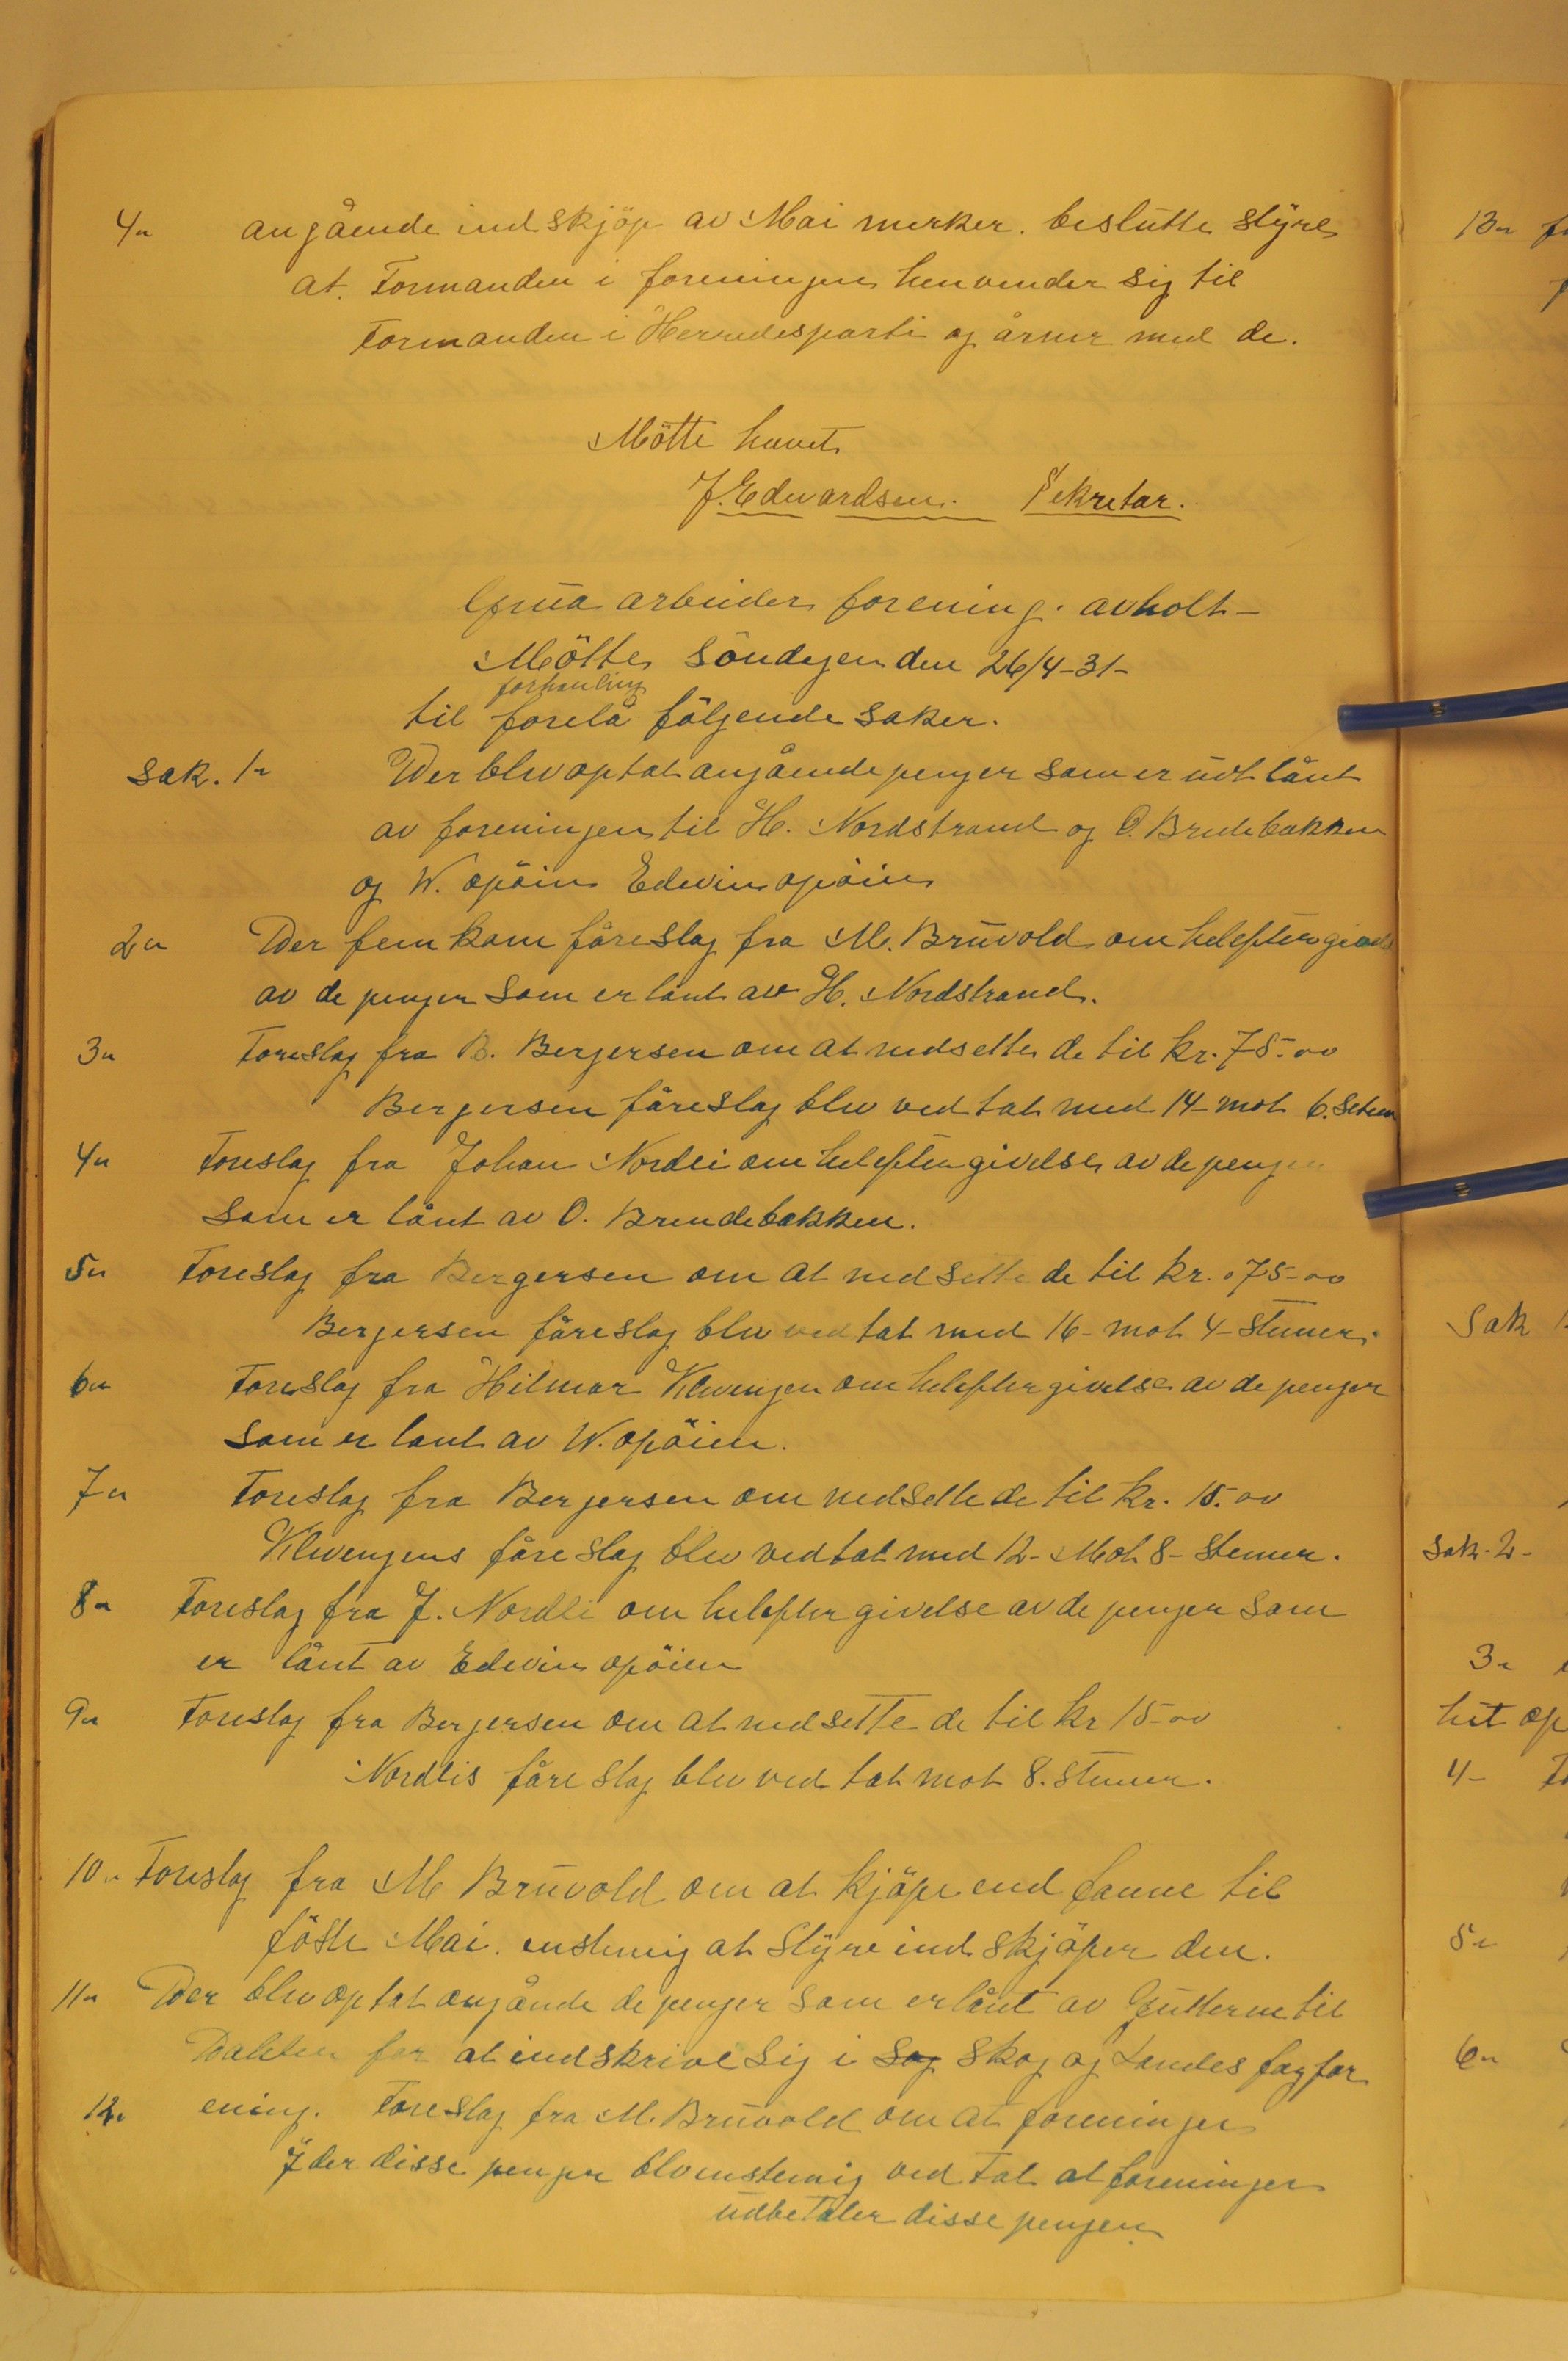 4n angående indskjöp av Mai merker. beslutte styre
at. Formanden i foreningen henvender sig til
Formanden i Herredsparti og årner med de.
Mötte hevet
J. Edvardsen. Sekretar.
Grua arbeider forening. avholt-
Mötte Söndagen den 26/4-31-
forhanling
til forelå fölgende saker.
Sak. 1n Der blev optat angående penger som er udt lånt
av foreningen til H. Nordstrand og O. Brudebakken
og W. opöien Edvin opöien
2n Der fem kom fåreslag fra M. Bruvold om helefter
av de penger som er lånt av H. Nordstrand.
3n Foreslag fra B. Bergersen om at nedsette de til kr. 75-00
Bergersen fåreslag blev ved tat med 14- mot 6.
4n Foreslag fra Johan Nordli om helefter givelse av de penger
som er lånt av O. Brendebakken.
5n Foreslag fra Bergersen om at nedsette de til kr. 75-00
Bergersen fåreslag blev ved tat med 16- mot 4- stemer.
6n Foreslag fra Hilmar Klevengen om helefter givelse av de penger
som er lant av W. opöien.
7n Foreslag fra Bergersen om nedsette de til kr. 15.00
Klevengens fåreslag blev vedtat med 12- Mot 8- stemer.
8n Foreslag fra J. Nordli om helefter givelse av de penger som
er lånt av Edvin opöien
9n Foreslag fra Bergersen om at nedsette de til kr 15-00
Nordlis fåreslag blev ved tat mot 8. stemer.
10n Foreslag fra M Bruvold om at kjöpe end fanne til
föste Mai. enstemig at styre ind skjöper den.
11n Der blev optat angånde de penger som er lånt av Gutterne til
for at indskrive sig i Sog Skog og Landes fagfor
12n ening. Foreslag fra M. Bruvold om at foreningen
der disse penger blv enstemig ved tat at foreningen
udbetaler disse pengen
13n
Sak
Sak-2-
3n
het op
4-
5n
6n